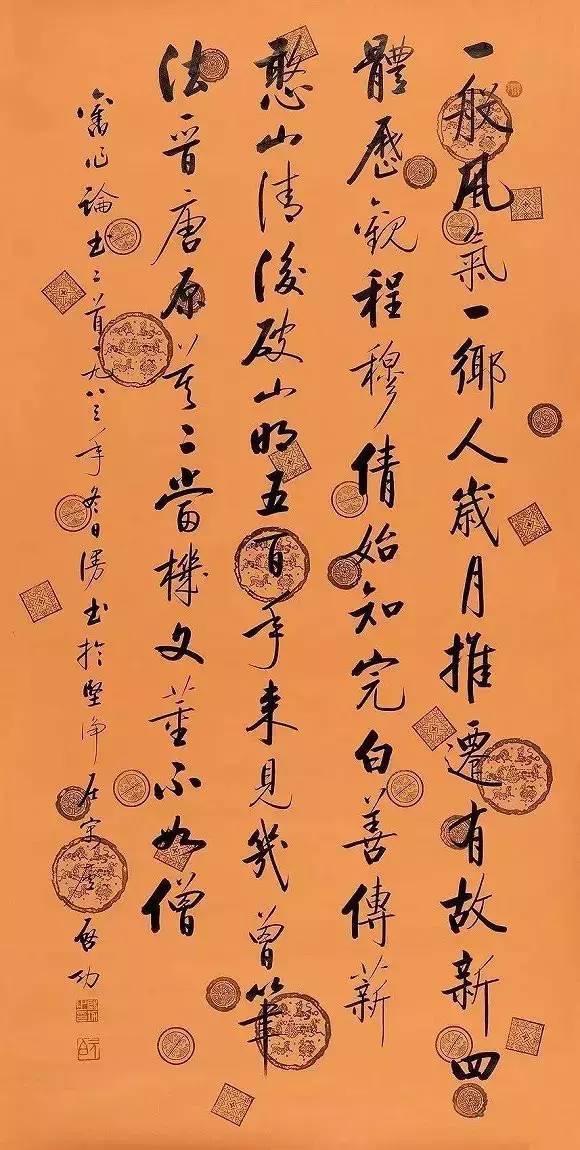 一般風氣一鄉人歲月推遷有故新四
體歷觀程穆倩始知完白善傳薪
憨山清後破山明五百年來見幾曾筆
法晉唐原莫二當機文董不如僧
舊作論書二首一九八三年冬日漫書於堅淨居 啟功